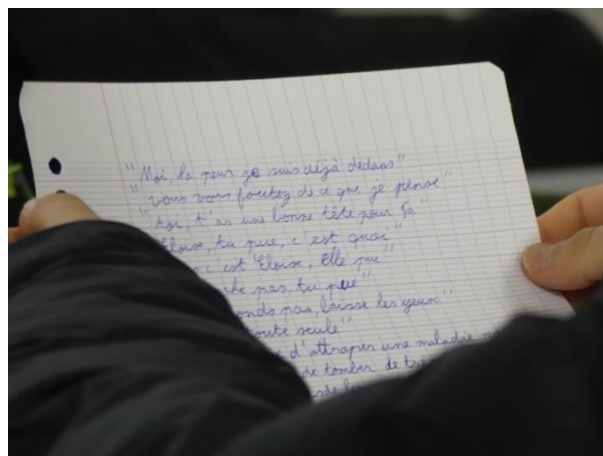 "Moi, la peur je suis déjà dedans"
"vous vous foutez de ce que je pense"
"toi, t'as une bonne tête pour ça"
Eloïse, tu pue, c'est quoi"
c'est Eloïse, Elle pue"
pas, tu pue"
pas, laisse les yeux"
toute seule"
d'attraper une maladie
de tomber de